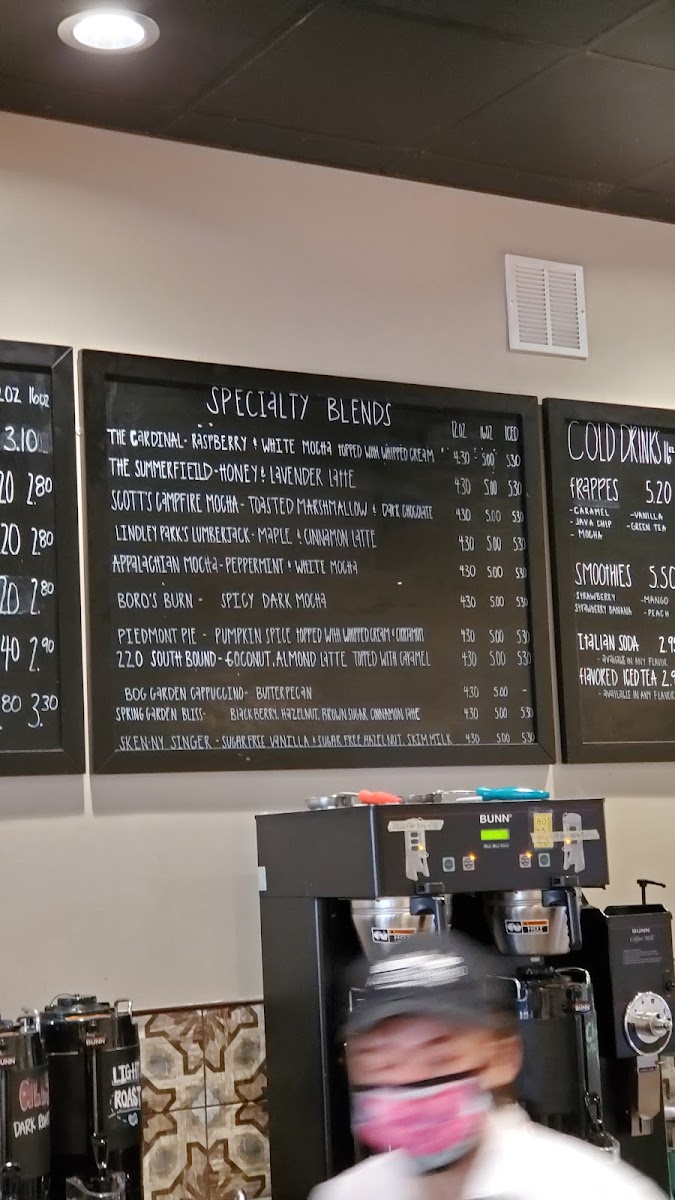 2OZ 16OZ
3.10
20 2.80
20 2.80
20 2.80
40 2.90
.80 3.30
SPECIALTY BLENDS
12OZ 16OZ ICED
THE CARDINAL - RASPBERRY & WHITE MOCHA TOPPED WITH WHIPPED CREAM 4.30 5.00 5.30
THE SUMMERFIEILD - HONEY & LAVENDER LATTE 4.30 5.00 5.30
SCOTT'S CAMPFIRE MOCHA - TOASTED MARSHMALLOW & DARK CHOCOLATE 4.30 5.00 5.30
LINDLEY PARK'S LUMBERJACK - MAPLE & CINNAMON LATTE 4.30 5.00 5.30
APPALACHIAN MOCHA - PEPPERMINT & WHITE MOCHA 4.30 5.00 5.30
BORO'S BURN - SPICY DARK MOCHA 4.30 5.00 5.30
PIEDMONT PIE - PUMPKIN SPICE TOPPED WITH WHIPPED CREAM & CINNAMON 4.30 5.00 5.30
220 SOUTH BOUND - COCONUT, ALMOND LATTE TOPPED WITH CARAMEL 4.30 5.00 5.30
BOG GARDEN CAPPUCCINO - BUTTERPECAN 4.30 5.00 -
SPRING GARDEN BLISS - BLACKBERRY, HAZELNUT, BROWN SUGAR CINNAMON LATTE 4.30 5.00 5.30
SKEN-NY SINGER - SUGAR FREE VANILLA & SUGAR FREE HAZELNUT, SKIM MILK 4.30 5.00 5.30
COLD DRINKS 16oz
FRAPPES 5.20
- CARAMEL - VANILLA
- JAVA CHIP - GREEN TEA
- MOCHA
SMOOTHIES 5.50
STRAWBERRY - MANGO
STRAWBERRY BANANA - PEACH
ITALIAN SODA 2.9
- AVAILABLE IN ANY FLAVOR
FLAVORED ICED TEA 2.9
- AVAILABLE IN ANY FLAVOR
BUNN
HOT
HOT
BUNN
Coffee Mill
BUNN
BUNN
LIGHT ROAST
DARK